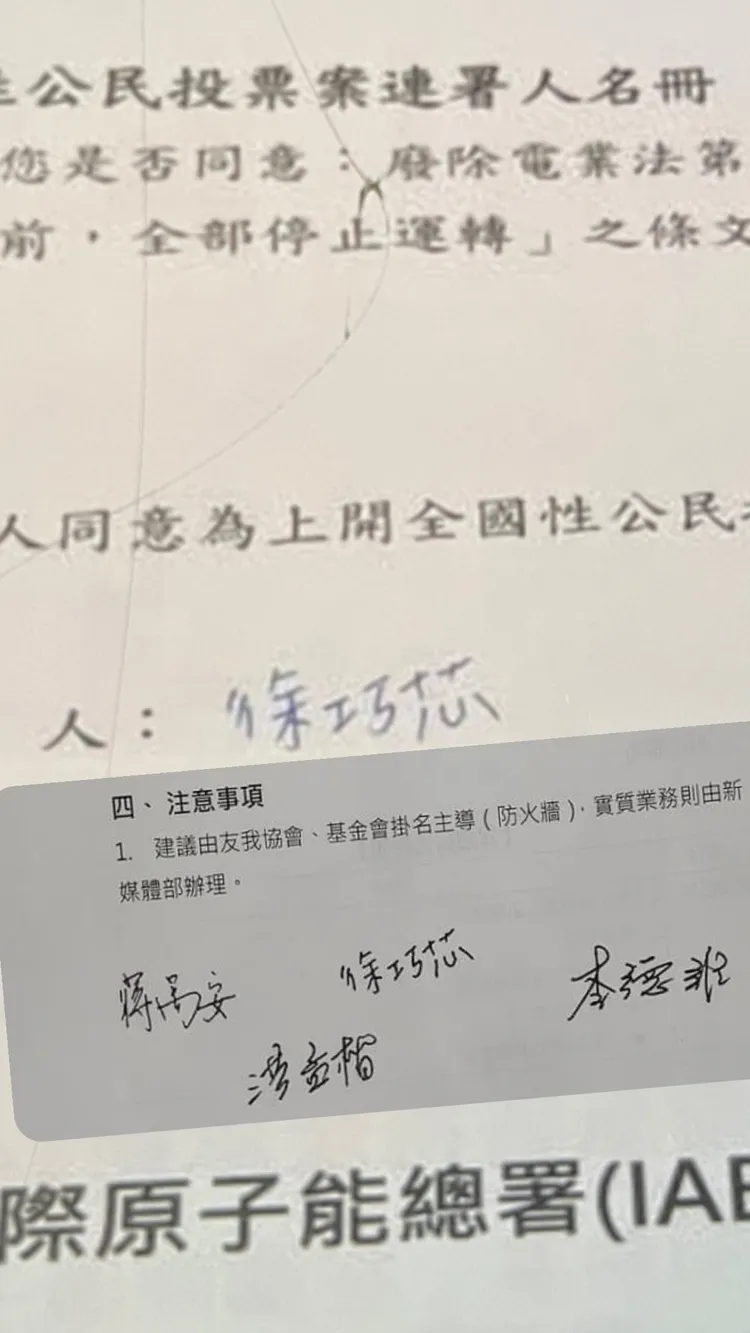 公民投票案連署人名冊
您是否同意：廢除電業法第
前，全部停止運轉」之條文
人同意為上開全國性公民
人：徐巧芯
四、注意事項
1. 建議由友我協會、基金會掛名主導（防火牆），實質業務則由新
媒體部辦理。
蔣萬安 徐巧芯 李德維
洪孟楷
際原子能總署(IAE